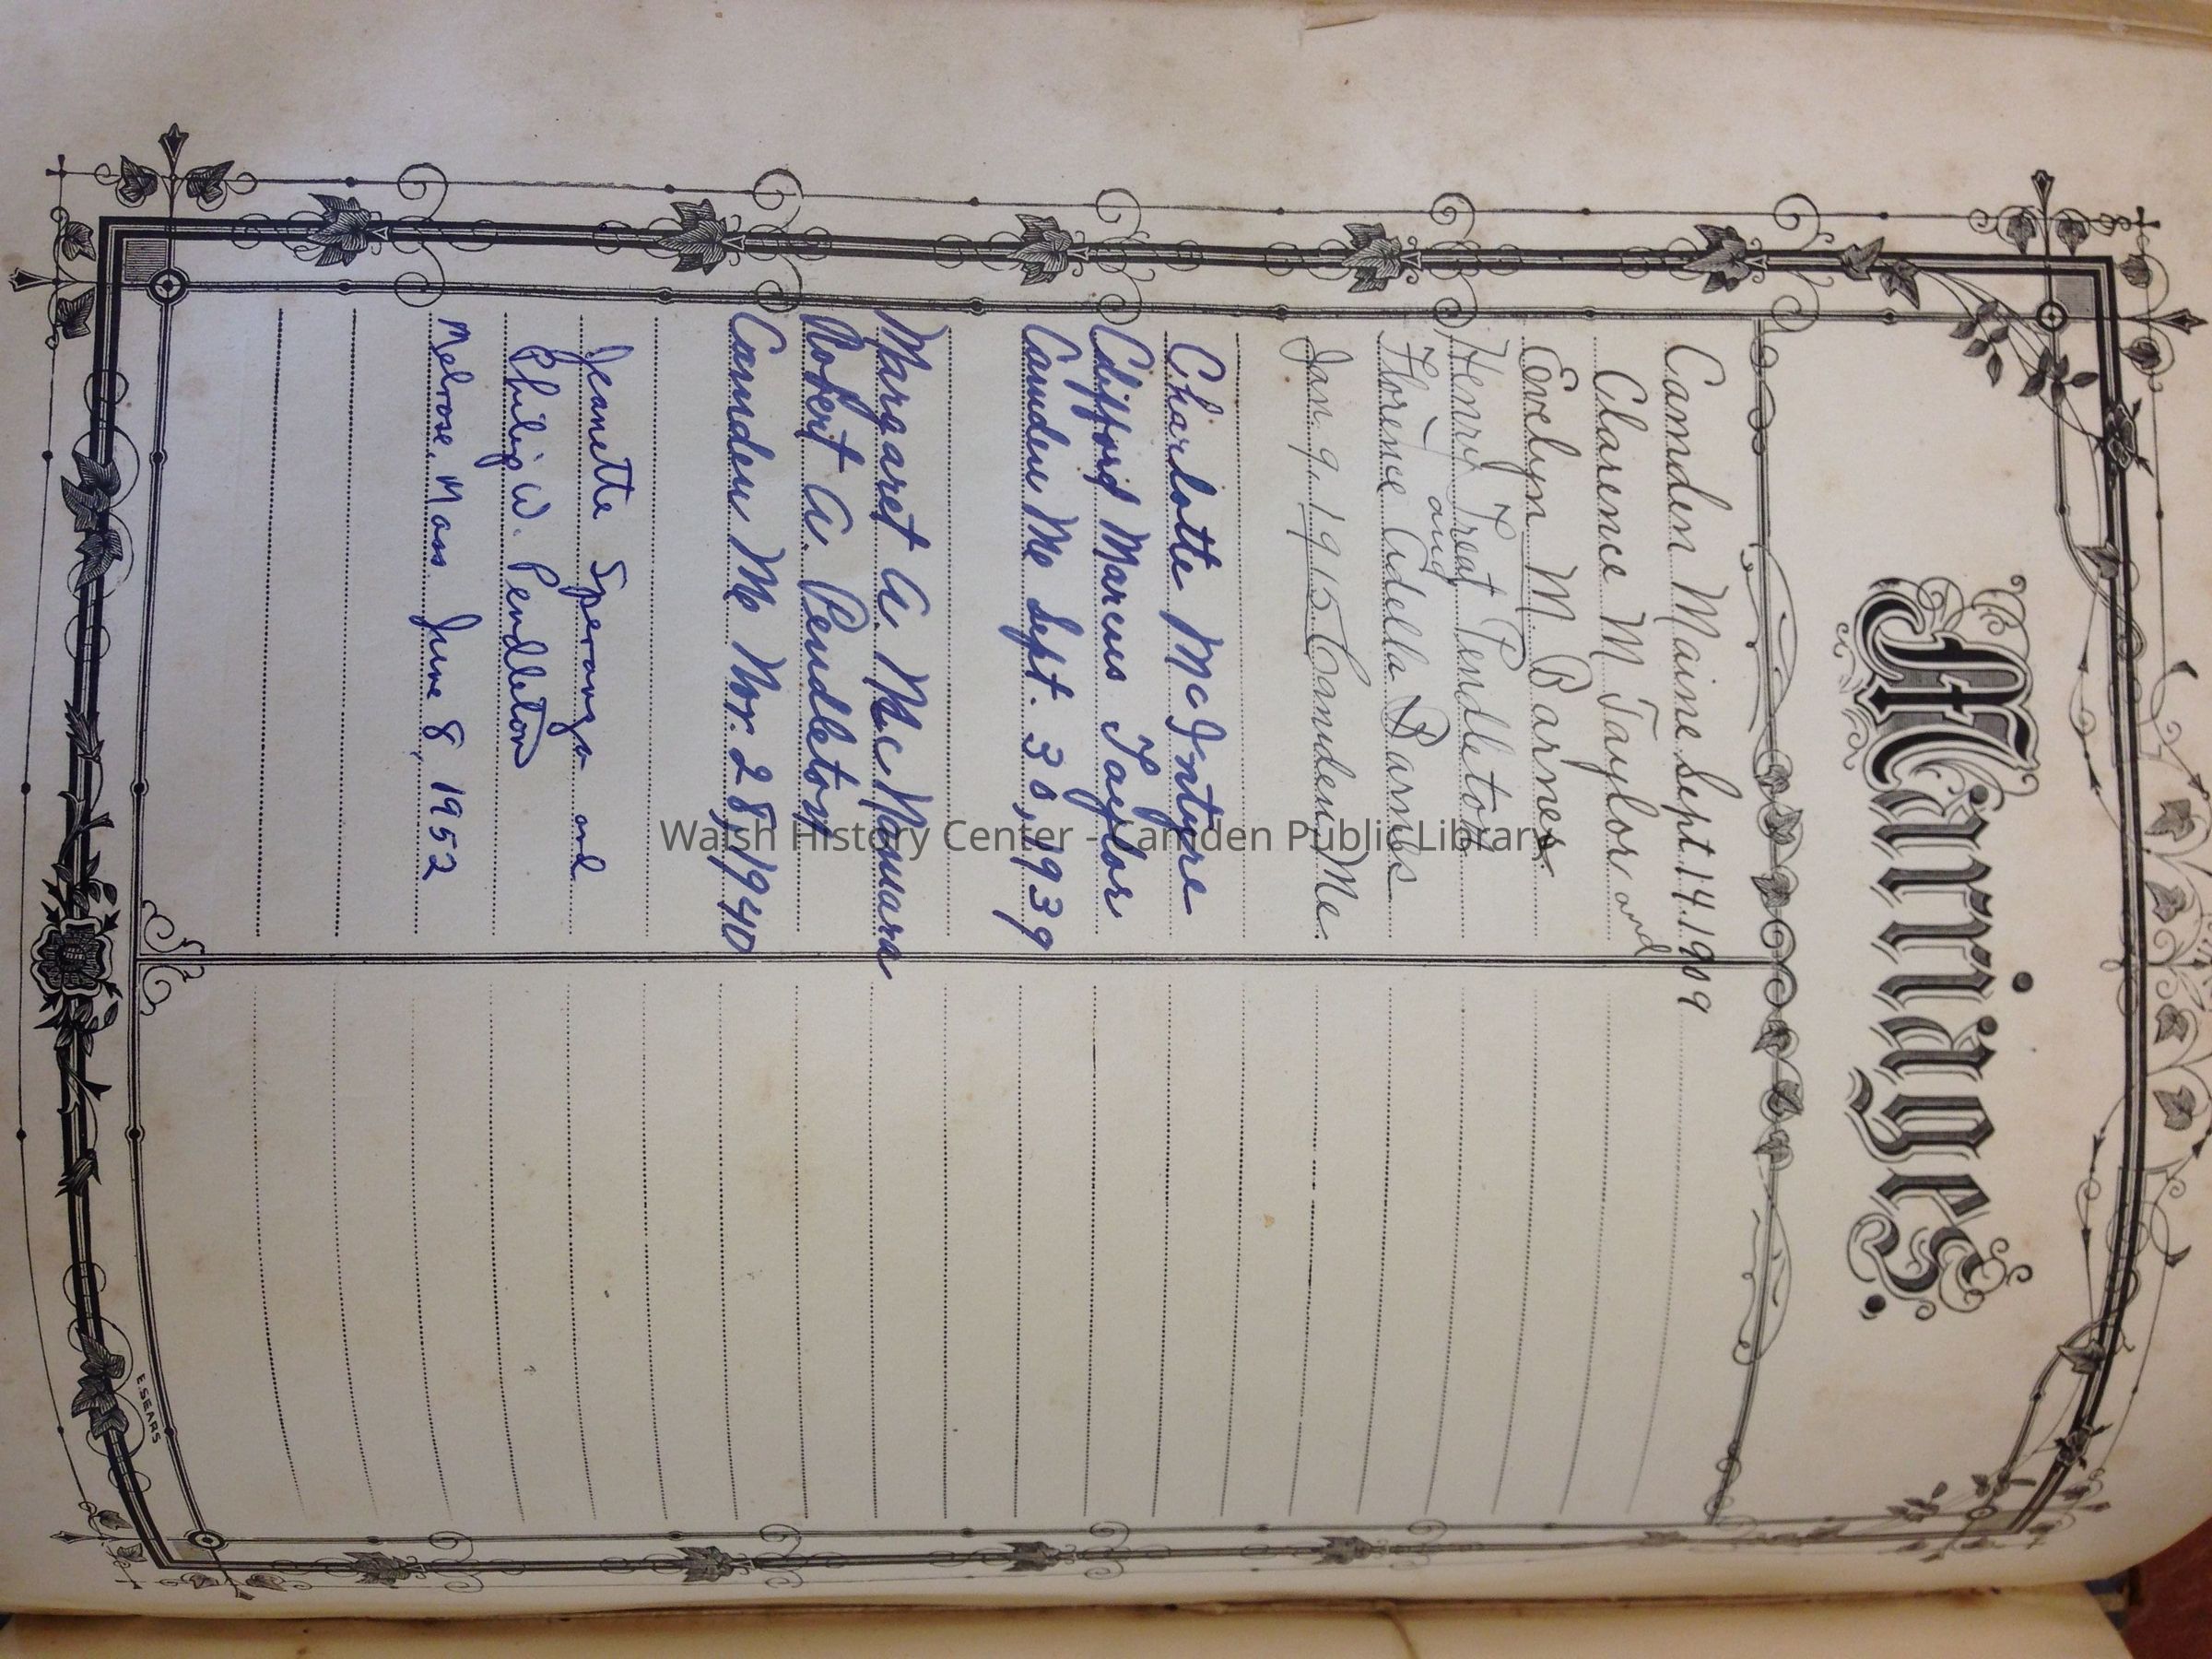 Marriages.
Camden Maine Sept 14. 1909
Clarence M Taylor and
Evelyn M. Barnes
Henry Treat Pendleton
and
Florence Adella Barnes
Jan. 9, 1915 Camden, Me.
Charlotte McIntyre
Clifford Marcus Taylor
Camden Me Sept. 30, 1939
Margaret A. McNamara
Robert A. Pendleton
Camden Me Nov. 28, 1940
Jeanette and
Philip W. Pendleton
Melrose, Mass. June 8, 1952
E. SEARS
Walsh History Center - Camden Public Library